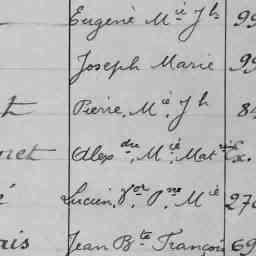 Eugène M.ie J.h 99
Joseph Marie 99
Pierre, M.ie J.h 84
Alex.dre M.ie Mat.rin Ex.
Lucien, V.or P.re M.ie 270
Jean B.te François 69